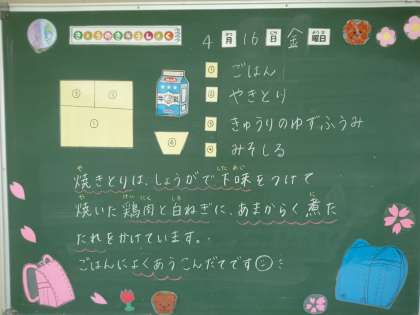 きょうのきゅうしょく
4月16日金曜日
① ごはん
② やきとり
③ きゅうりのゆずふうみ
④ みそしる
② ③
①
④
牛乳
焼きとりは、しょうがで下味をつけて
焼いた鶏肉と白ねぎに、あまからく煮た
たれをかけています。
ごはんによくあうこんだてです